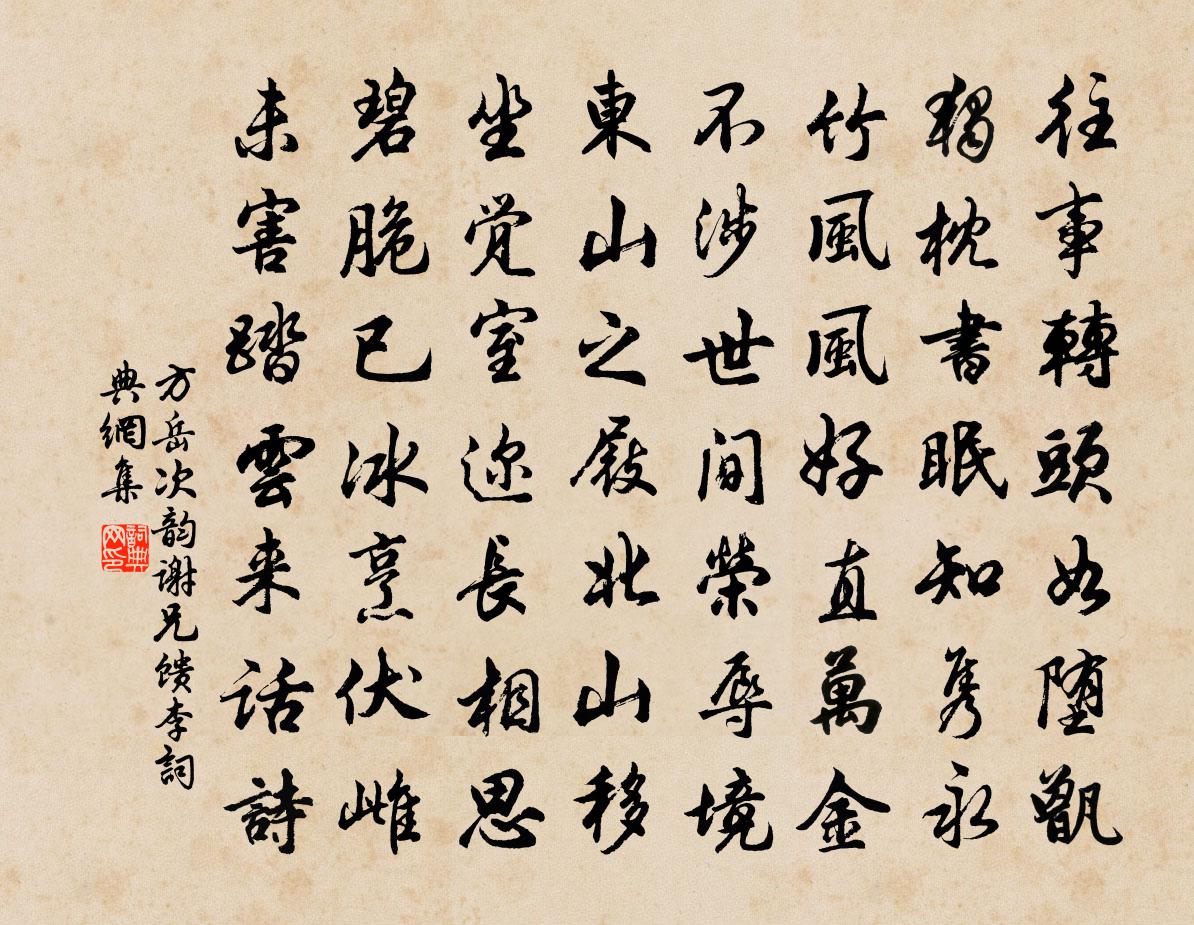 往事轉頭如堕甑
獨枕書眠知隽永
竹風風好直萬金
不涉世间榮辱境
東山之屐北山移
坐觉室迩長相思
碧脆已冰烹伏雌
未害踏雲来话詩
方岳次韵谢兄馈李詞
典網集
詞典
网印